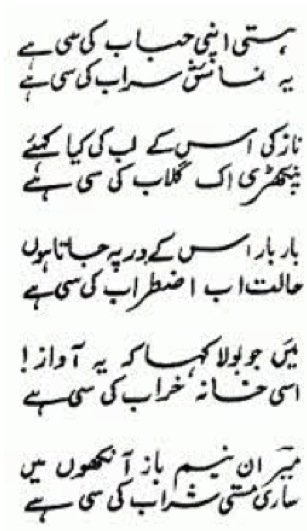 ہستی اپنی حباب کی سی ہے
یہ نمائش سراب کی سی ہے
نازکی اس کے لب کی کیا کہئے
پنکھڑی اک گلاب کی سی ہے
بار بار اس کے در پہ جاتا ہوں
حالت اب اضطراب کی سی ہے
میں جو بولا کہا کہ یہ آواز!
اسی خانہ خراب کی سی ہے
میرؔ ان نیم باز آنکھوں میں
ساری مستی شراب کی سی ہے